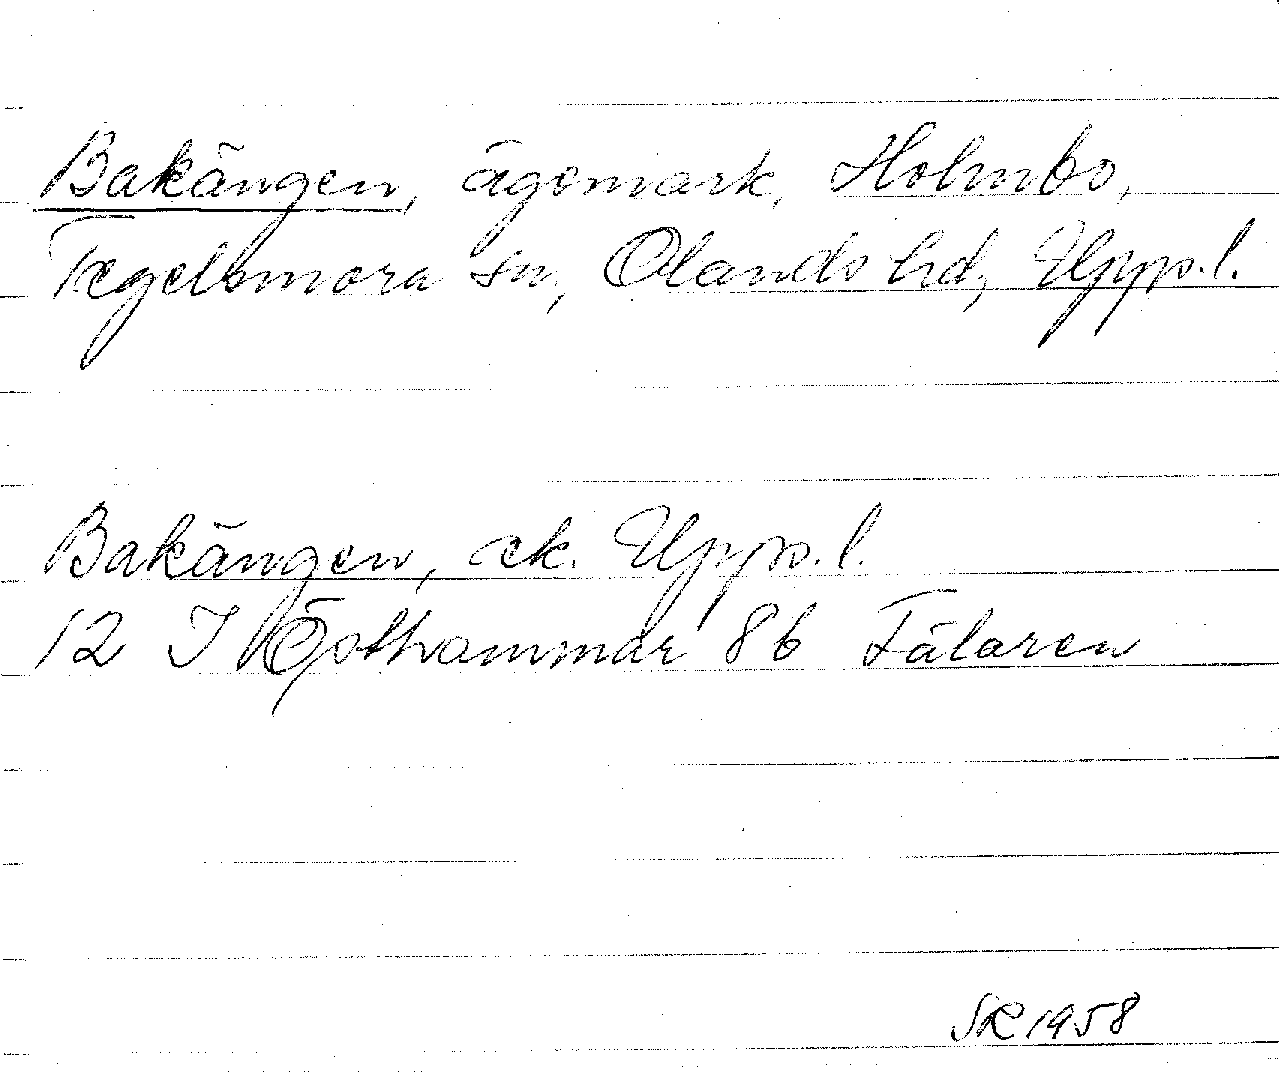 Bakängen, ägomark, Holmbo,
Tegelsmora sn, Olands hd, Uppl.
Bakängen, ek. Uppl.
12 I Östhammar 8b Fälaren
SR 1958